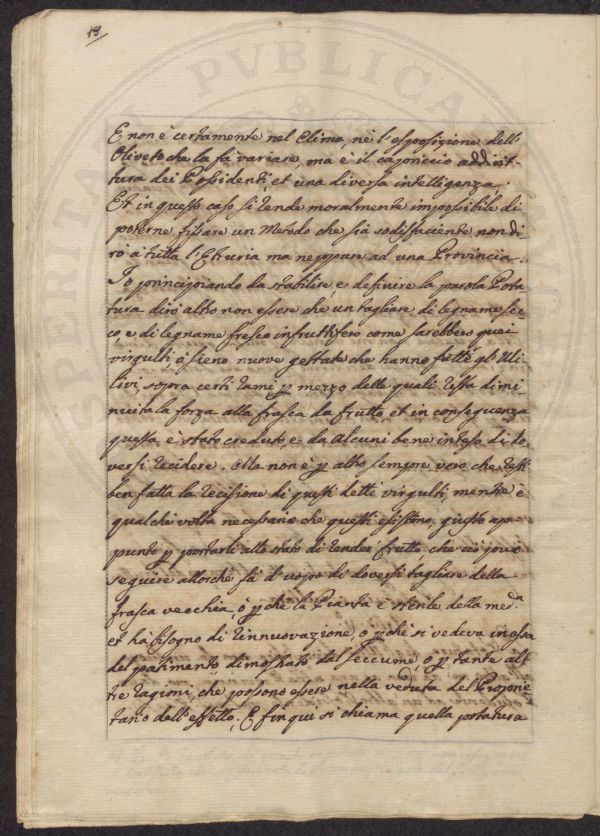 18
E non è certamente nel Clima, ne l'esposizione dell'
Oliveto che la fà variare, ma è il capriccio addirit-
tura dei Possidenti, et una diversa intelligenza.
Et in questo caso si rende moralmente impossibile di
poterne fissare un Metodo che sia sodisfaciente non di
rò a tutta l'Etruria ma neppure ad una Provincia.
Io principiando da stabilire, e definire la parola Pota
tura dirò altro non essere che un tagliare di legname sec
co, e di legname fresco infruttifero come sarebbero quei
virgulti, ò sieno nuove gettate che hanno fatte gl'Uli
livi, sopra certi rami p mezzo delle quali resta dimi
nuita la forza alla frasca da frutto, et in conseguenza
questa è stato creduto, e da alcuni bene inteso di do
versi recidere. Ma non è p altro sempre vero che resti
ben fatta la recisione di questi detti virgulti, mentre è
qualche volta necessario che questi esistono, giusto ap-
punto p portarli allo stato di render frutto che ciò può
seguire allorchè fà d'uopo di doversi tagliare della
frasca vecchia, ò p chè la Pianta è sterile della med.a
et hà bisogno di rinnuovazione, o p chè si vedeva in essa
del patimento dimostrato dal seccume, o p tante al
tre ragioni, che possono essere nella veduta del Proprie
tario dell'effetto. E fin qui si chiama quella potatura
PVBLICA